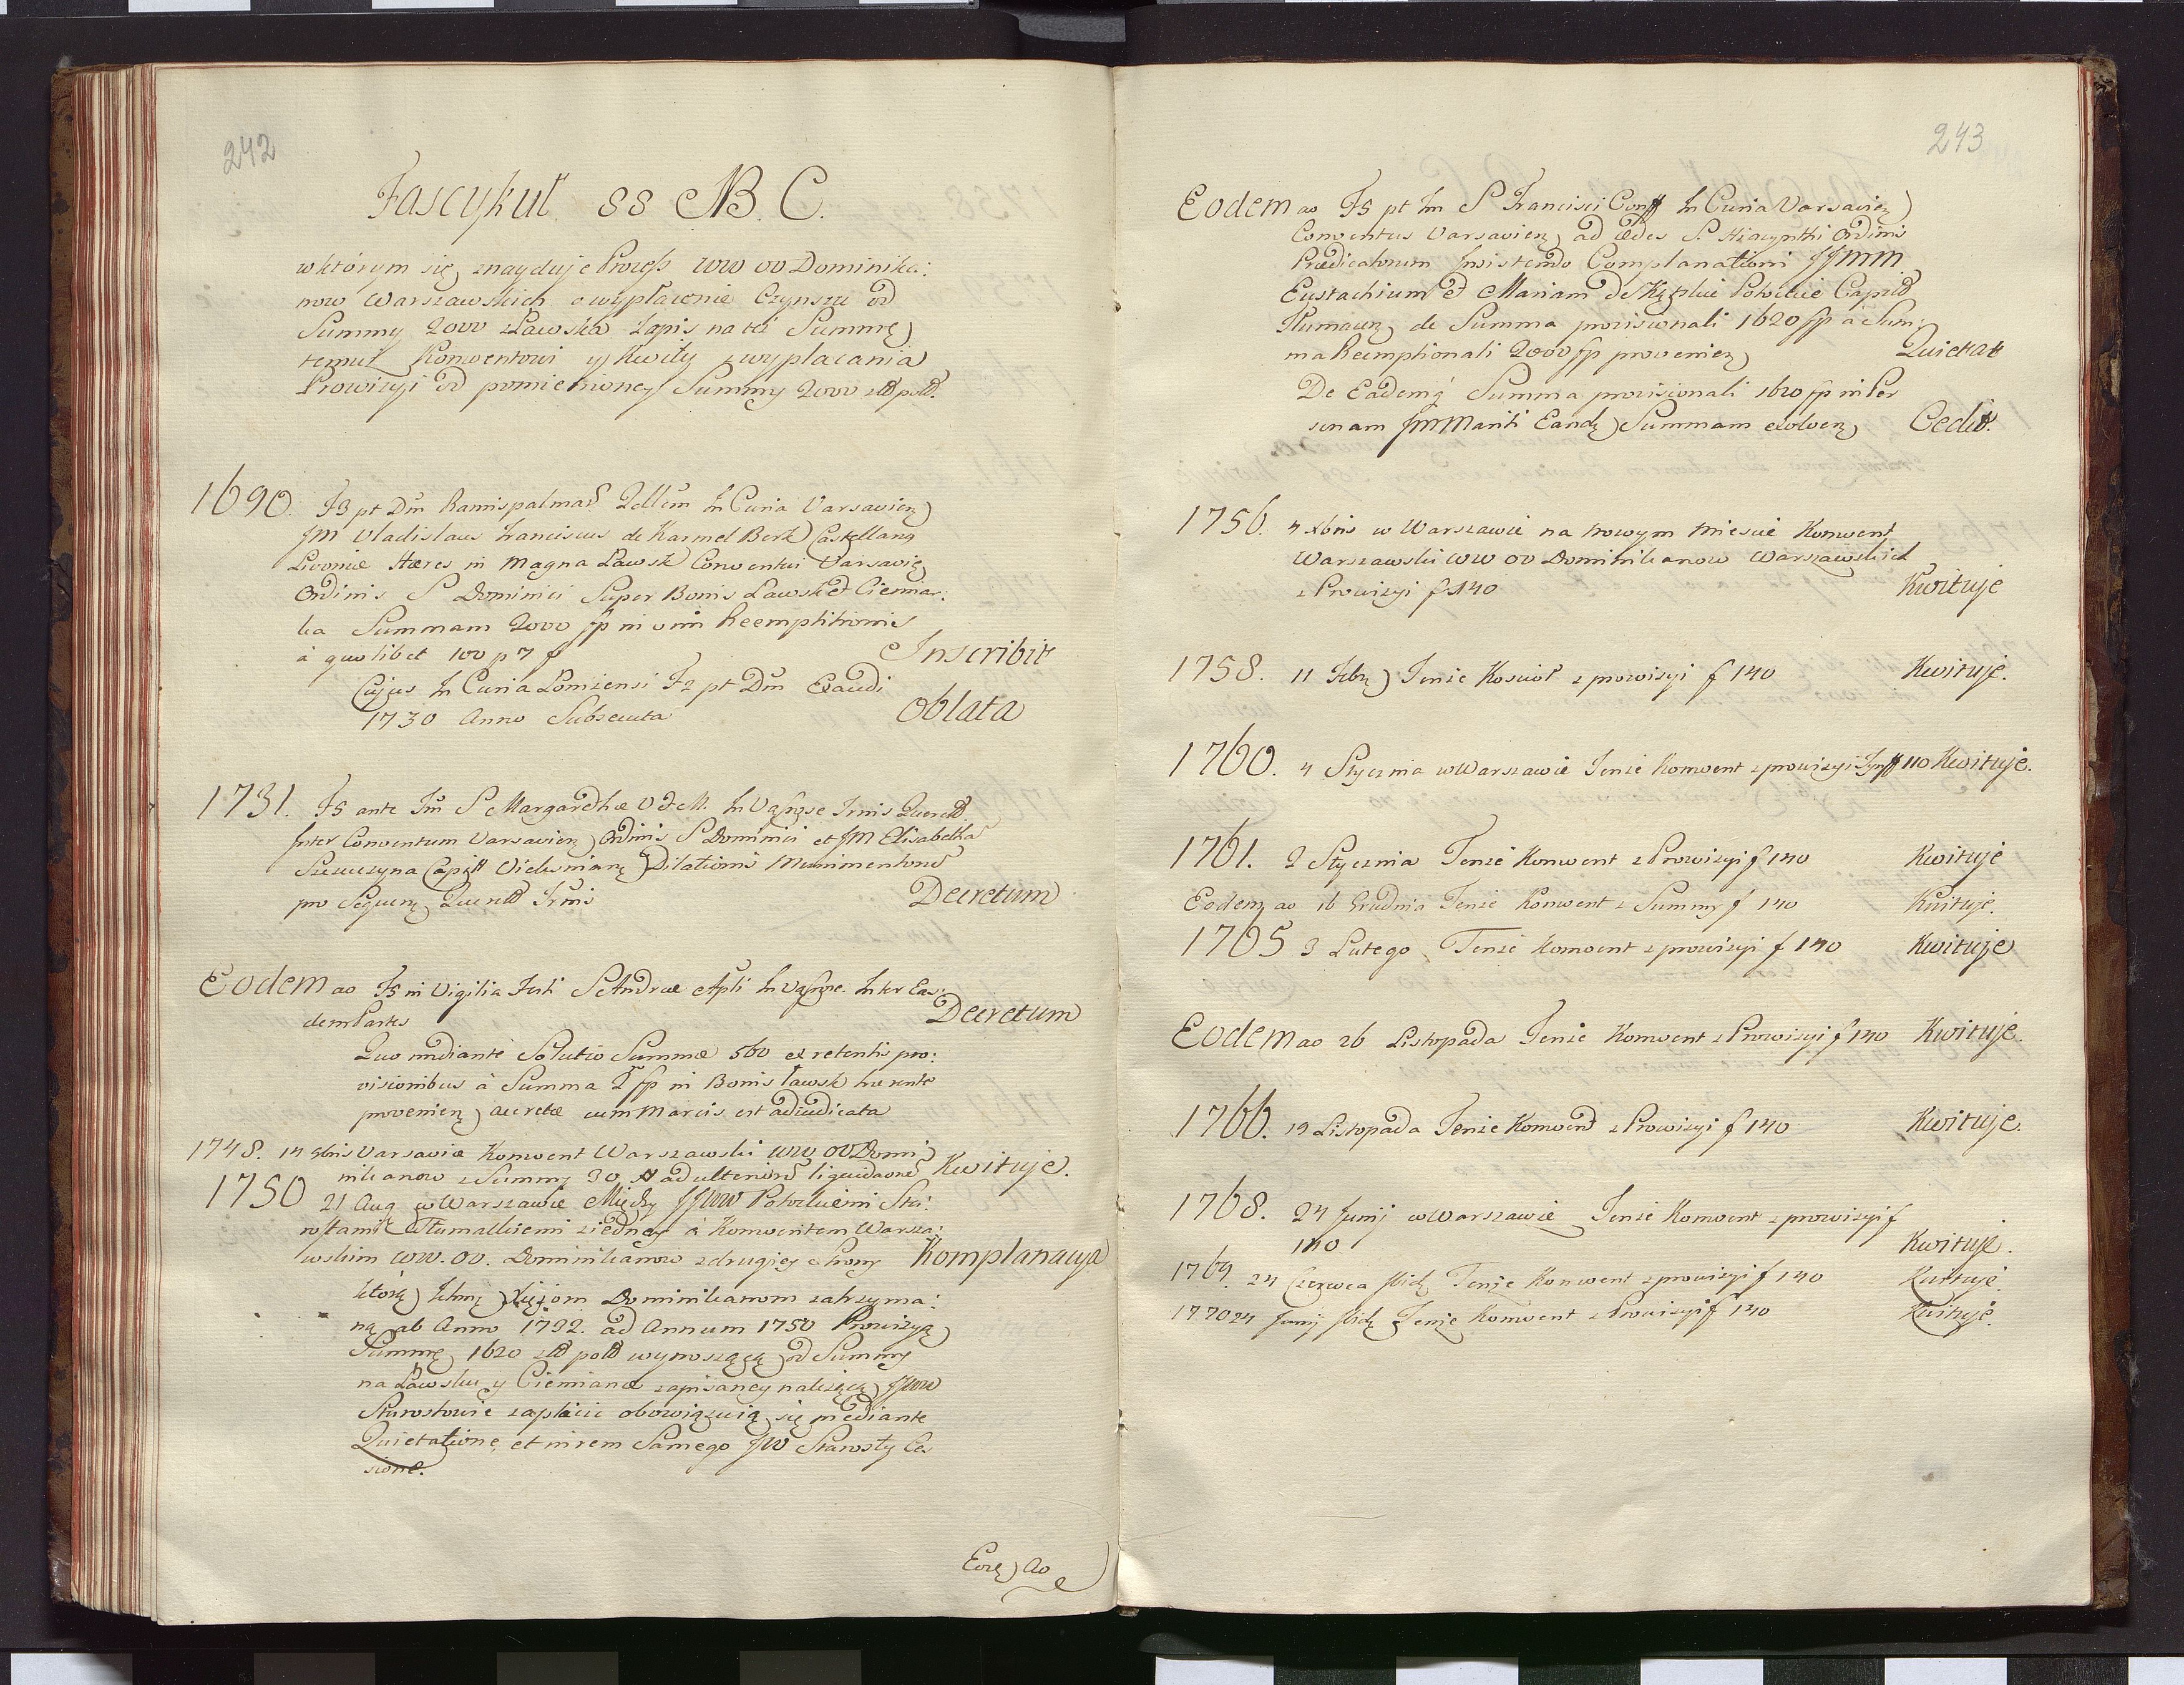 242
Fascykuł 88 NB. C.
w którym się znayduje Process WW OO Dominika:
now Warszawskich o wypłacenie Czynszu od
Summy 2000 z Ławska Zapis na tę Summę
temuż Konwentowi y Kwity z wypłacania
Prowizyi od pomienioney Summy 2000 złł poll.
1690. F3 pt Dm Ramispalmar In Curia Varsavien
JM Vladislaus Franciscus de Karmel Berk Castellang
Livoniæ Hæres in Magna Lawsk Conventui Varsavię
Ordinis S Dominici Super Bonis Lawsk et Ciemian:
ka Summam 2000 fp in vim Reemptitionis
à quolibet 100 p 7 f Inscribit
Cujus In Curia Lomzensi F2 pt Dm Exaudi
1730 Anno Subsecuta Oblata
1731. F5 ante Fm S Margarethæ V et M. In
Inter Conventum Varsavien Ordinis S Dominici et JM Elisabetha
Szczuczyna Dilationis Munimentorum
pro Decretum
Eodem ao F5 in Vigilia Festi S Andreæ Apli In Inter Eas:
dem Partes Decretum
Quo mediante Solutio Summæ 560 ex retentis pro:
visionibus à Summa 2 fp in Bonis Ławsk
provenien decretæ cum Marcis est adiudicata
1748. 14 Varsaviæ Konwent Warszawski WW OO Domi
nikanow z Summy 30 ad ulteriore Kwituje.
1750 21 Aug w Warszawie Między JJWW Potockiemi Sta:
rostami Tłumackiemi z iedney à Konwentem Warsza:
wskim WW. OO. Dominikanow z drugiey Strony Komplanacya
którą Xiężom Dominikanom zatrzyma:
ną ab Anno 1732. ad Annum 1750 Prowizyą
Summę 1620 złł poll wynoszącą od Summy
na Ławsku y Ciemiance zapisaney należącą JJWW
Starostowie zapłacić obowiązuią się mediante
Quietatione, et in rem Samego JW Starosty Ces
sione.
Eod Ao
243
Eodem ao F5 pt Fm S Francisci Conff In Curia Varsavien
Conventus Varsavien ad ædes S. Hiacynthi Ordinis
Prædicatorum Insistendo Complanationi JJMM
Eustachium et Mariam de Kątskie Potockie
de Summa provisionali 1620 fp a Sum:
ma Reemptionali 2000 fp provenien Quietat
De Eademq Summa provisionali 1620 fp in Per
sonam Mariti Eandę Summam exolven Cedit.
1756. 4 Xbris w Warszawie na nowym Miescie Konwent
Warszawski WW OO Dominikanow Warszawskich
z Prowizyi f 140 Kwituje
1758. 11 Tenże Kosciół z prowizyi f 140 Kwituje.
1760. 4 Stycznia w Warszawie Tenże Konwent z prowizyi Tynff 110 Kwituje.
1761. 2 Stycznia Tenże Konwent z Prowizyi f 140 Kwituje
Eodem ao 16 Grudnia Tenże Konwent z Summy f 140 Kwituje.
1765 3 Lutego Tenże Konwent z prowizyi f 140 Kwituje
Eodem ao 26 Listopada Tenże Konwent z Prowizyi f 140 Kwituje.
1766. 19 Listopada Tenże Konwent z Prowizyi f 140 Kwituje.
1768. 24 Junij w Warszawie Tenże Konwent z prowizyi f
140 Kwituje.
1769. 24 Czerwca Tenże Konwent z prowizyi f 140 Kwituje.
1770 24 Junij Tenże Konwent z Prowizyi f 140 Kwituje.